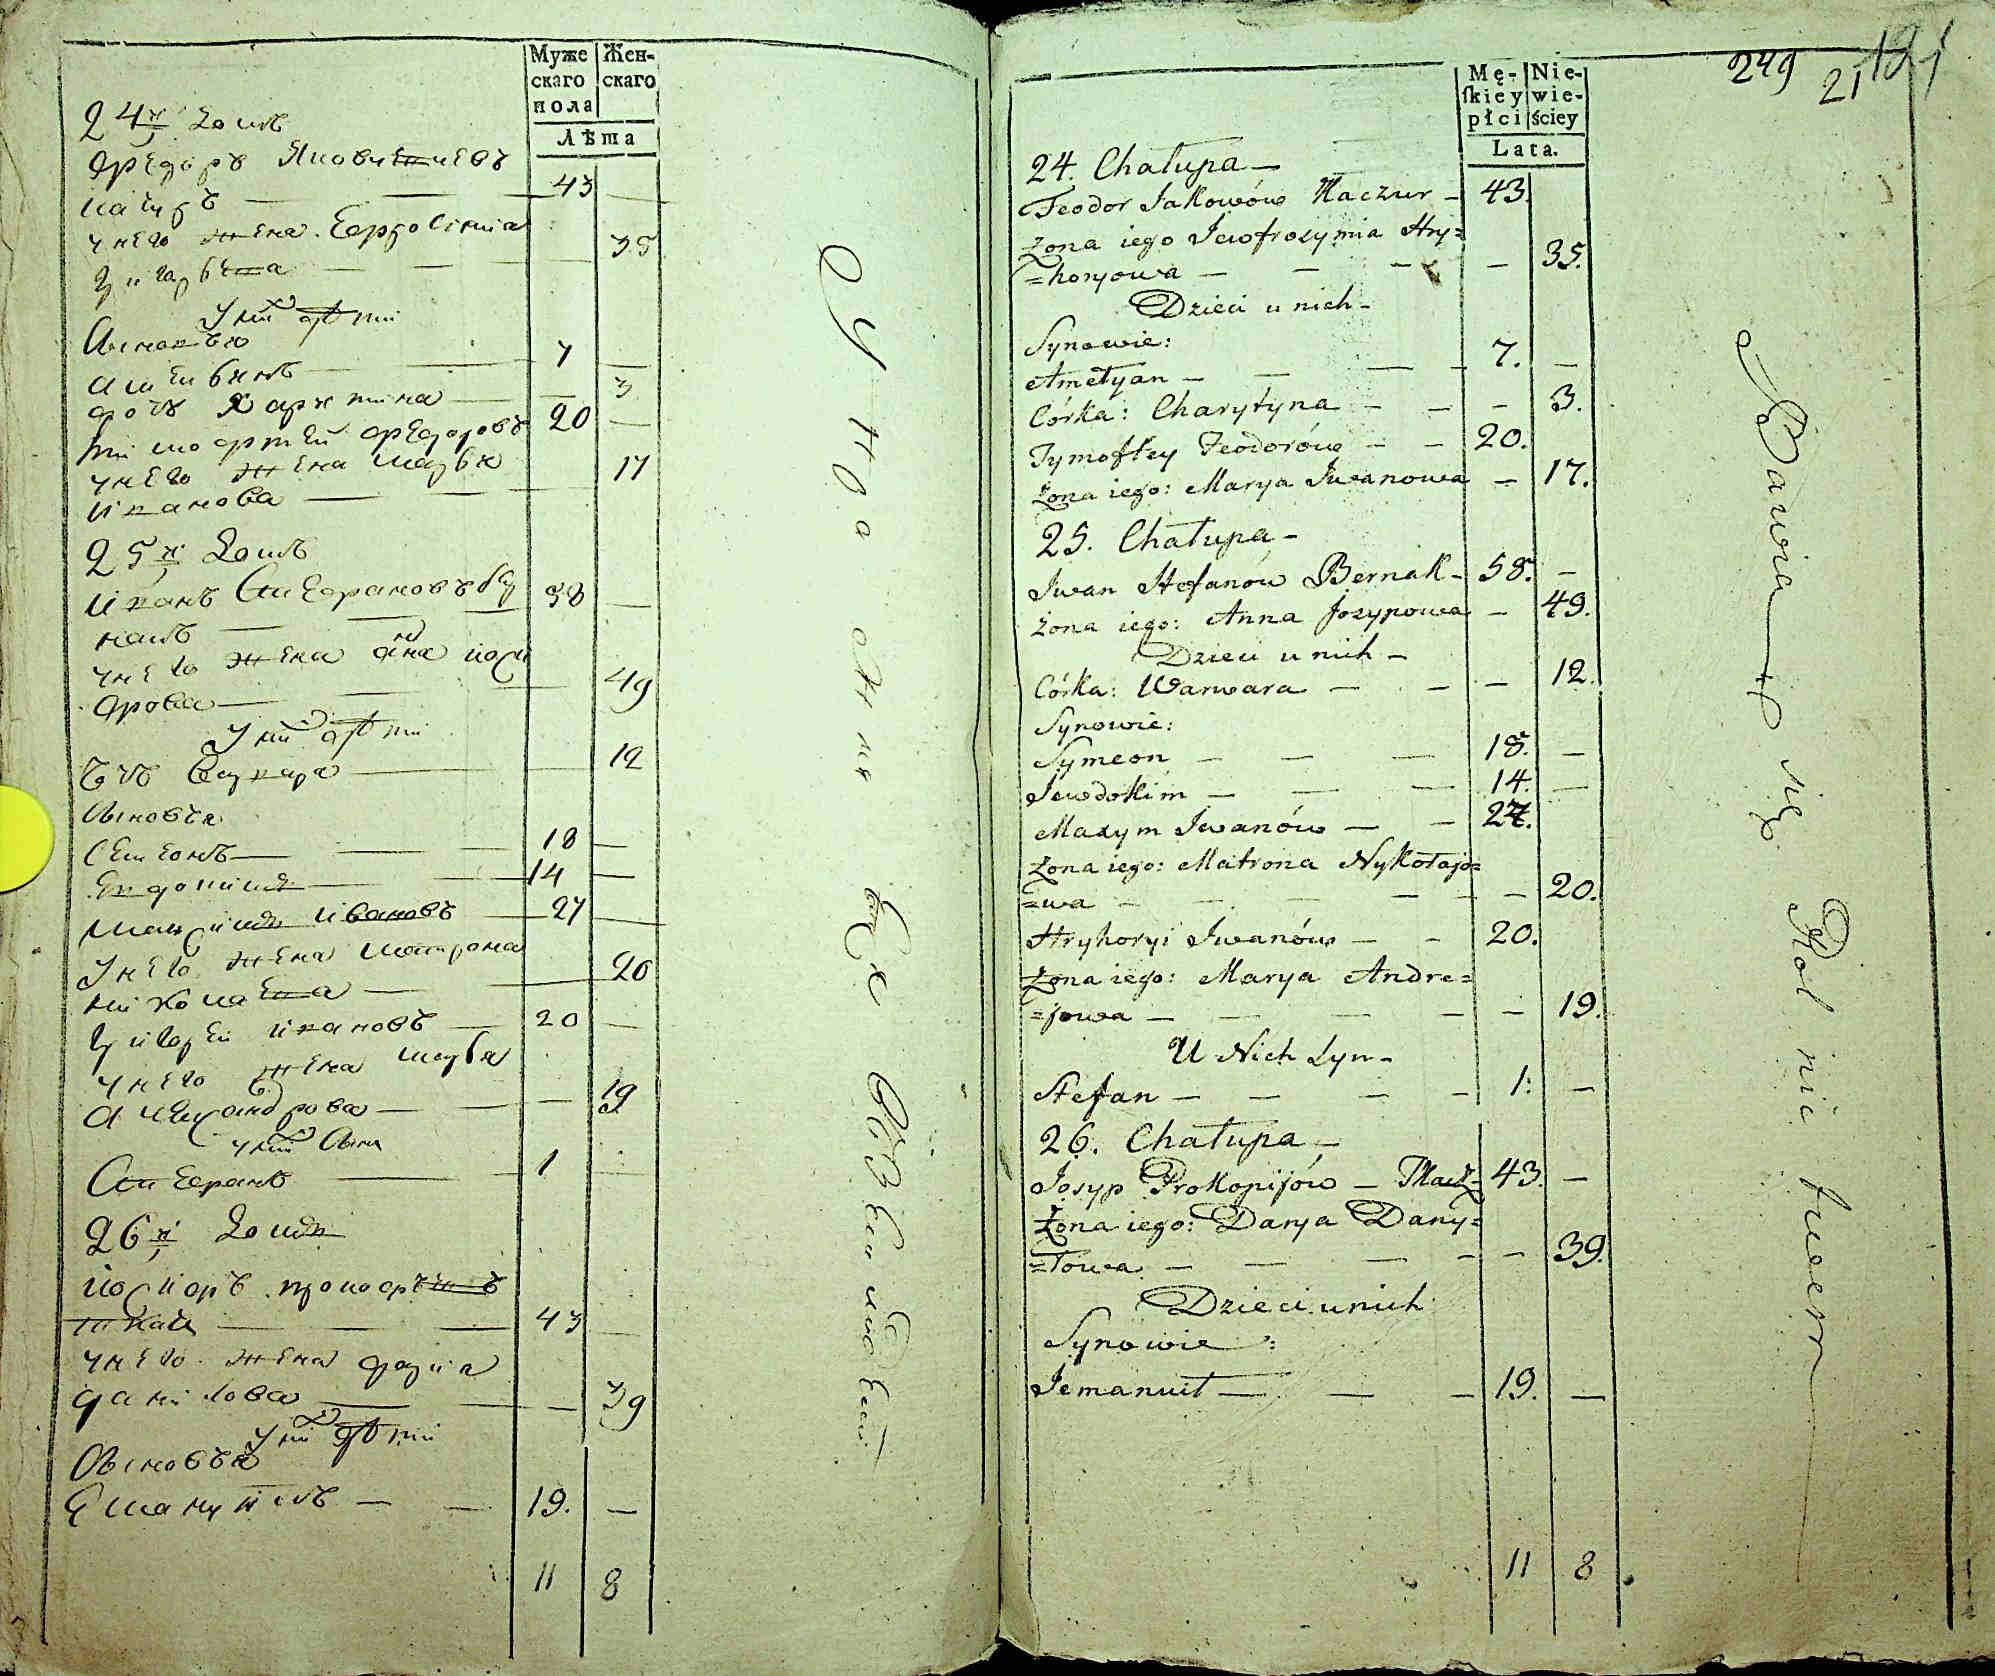 Муже
скаго
пола
Жен-
скаго
Лѣта
24й Домъ
Федоръ Яковичевъ
качуръ — — 43 —
у него жена Евфросиния
григорьева — — — 35
У них дѣти
Сыновья
— 7 —
дочь Харитина — — 3
Тимофтей Федоровъ 20 —
у него жена Марья
Иванова — — 17
25й Домъ
Иванъ Стефановъ Бер
накъ — — 58 —
у него жена Анна Йоси
пова — — — 49
У них дѣти
дочь Варвара — — 12
Сыновья
Семионъ — — — 18 —
Евдокимъ — — 14 —
Максимъ Ивановъ — 27 —
У него жена Матрона
Николаева — — 20
Григорей Ивановъ — 20 —
у него жена Марья
Александрова — — — 19
у них Сынъ
Стефанъ — — 1
26й Домъ
Йосипъ прокопъевъ
ткачъ — — — 43 —
у него жена дарья
данилова — — — 39
У них дѣти
Сыновья
Емануилъ — — 19. —
11 8
249
21
121
Mę-
skiey
płci
Nie-
wie-
ściey
Lata.
24. Chałupa —
Teodor Jakowów Kaczur — 43.
żona iego Jewfrozymia Hry=
=horyowa — — — — 35.
Dzieci u nich —
Synowie:
Ametyan — — — — 7. —
Córka: Charytyna — — — 3.
Tymoftey Teodorów — — 20.
żona iego: Marya Jwanowa — 17.
25. Chałupa —
Jwan Stefanów Bernak — 58. —
żona iego: Anna Josypowa — 49.
Dzieci u nich —
Córka: Warwara — — — 12.
Synowie:
Symeon — — — 18. —
Jewdokim — — — 14. —
Maxym Jwanów — — 27.
żona iego: Matrona Nykołajo=
=wa — — — — — 20.
Hryhoryi Jwanów — — 20.
żona iego: Marya Andre=
=jowa — — — — — 19.
U Nich Syn —
Stefan — — — — 1. —
26. Chałupa —
Josyp Prokopijów — Tkacz — 43. —
Żona iego: Darya Dany=
=łowa — — — — — 39.
Dzieci u nich
Synowie:
Jemanuił — — — 19. —
11 8
Bawią się Rolnictwem